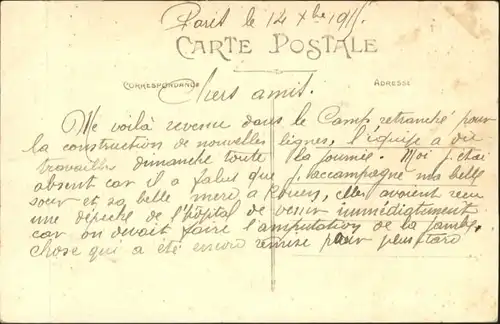 Paris le 14 Xbre 191
CARTE POSTALE
CORRESPONDANCE
ADRESSE
Chers amis.
Me voilà revenu dans le Camp retranché pour
la construction de nouvelles lignes, l'équipe a du
travailler dimanche toute la journée. Moi j'étai
absent car il a falus que j'accompagne ma belle
sœur et sa belle mère a Rouen, elles avaient recu
une dépêche de l'hôpital de venir immédiatement
car on devait faire l'amputation de la jambe,
chose qui a été encore remise pour plus tard